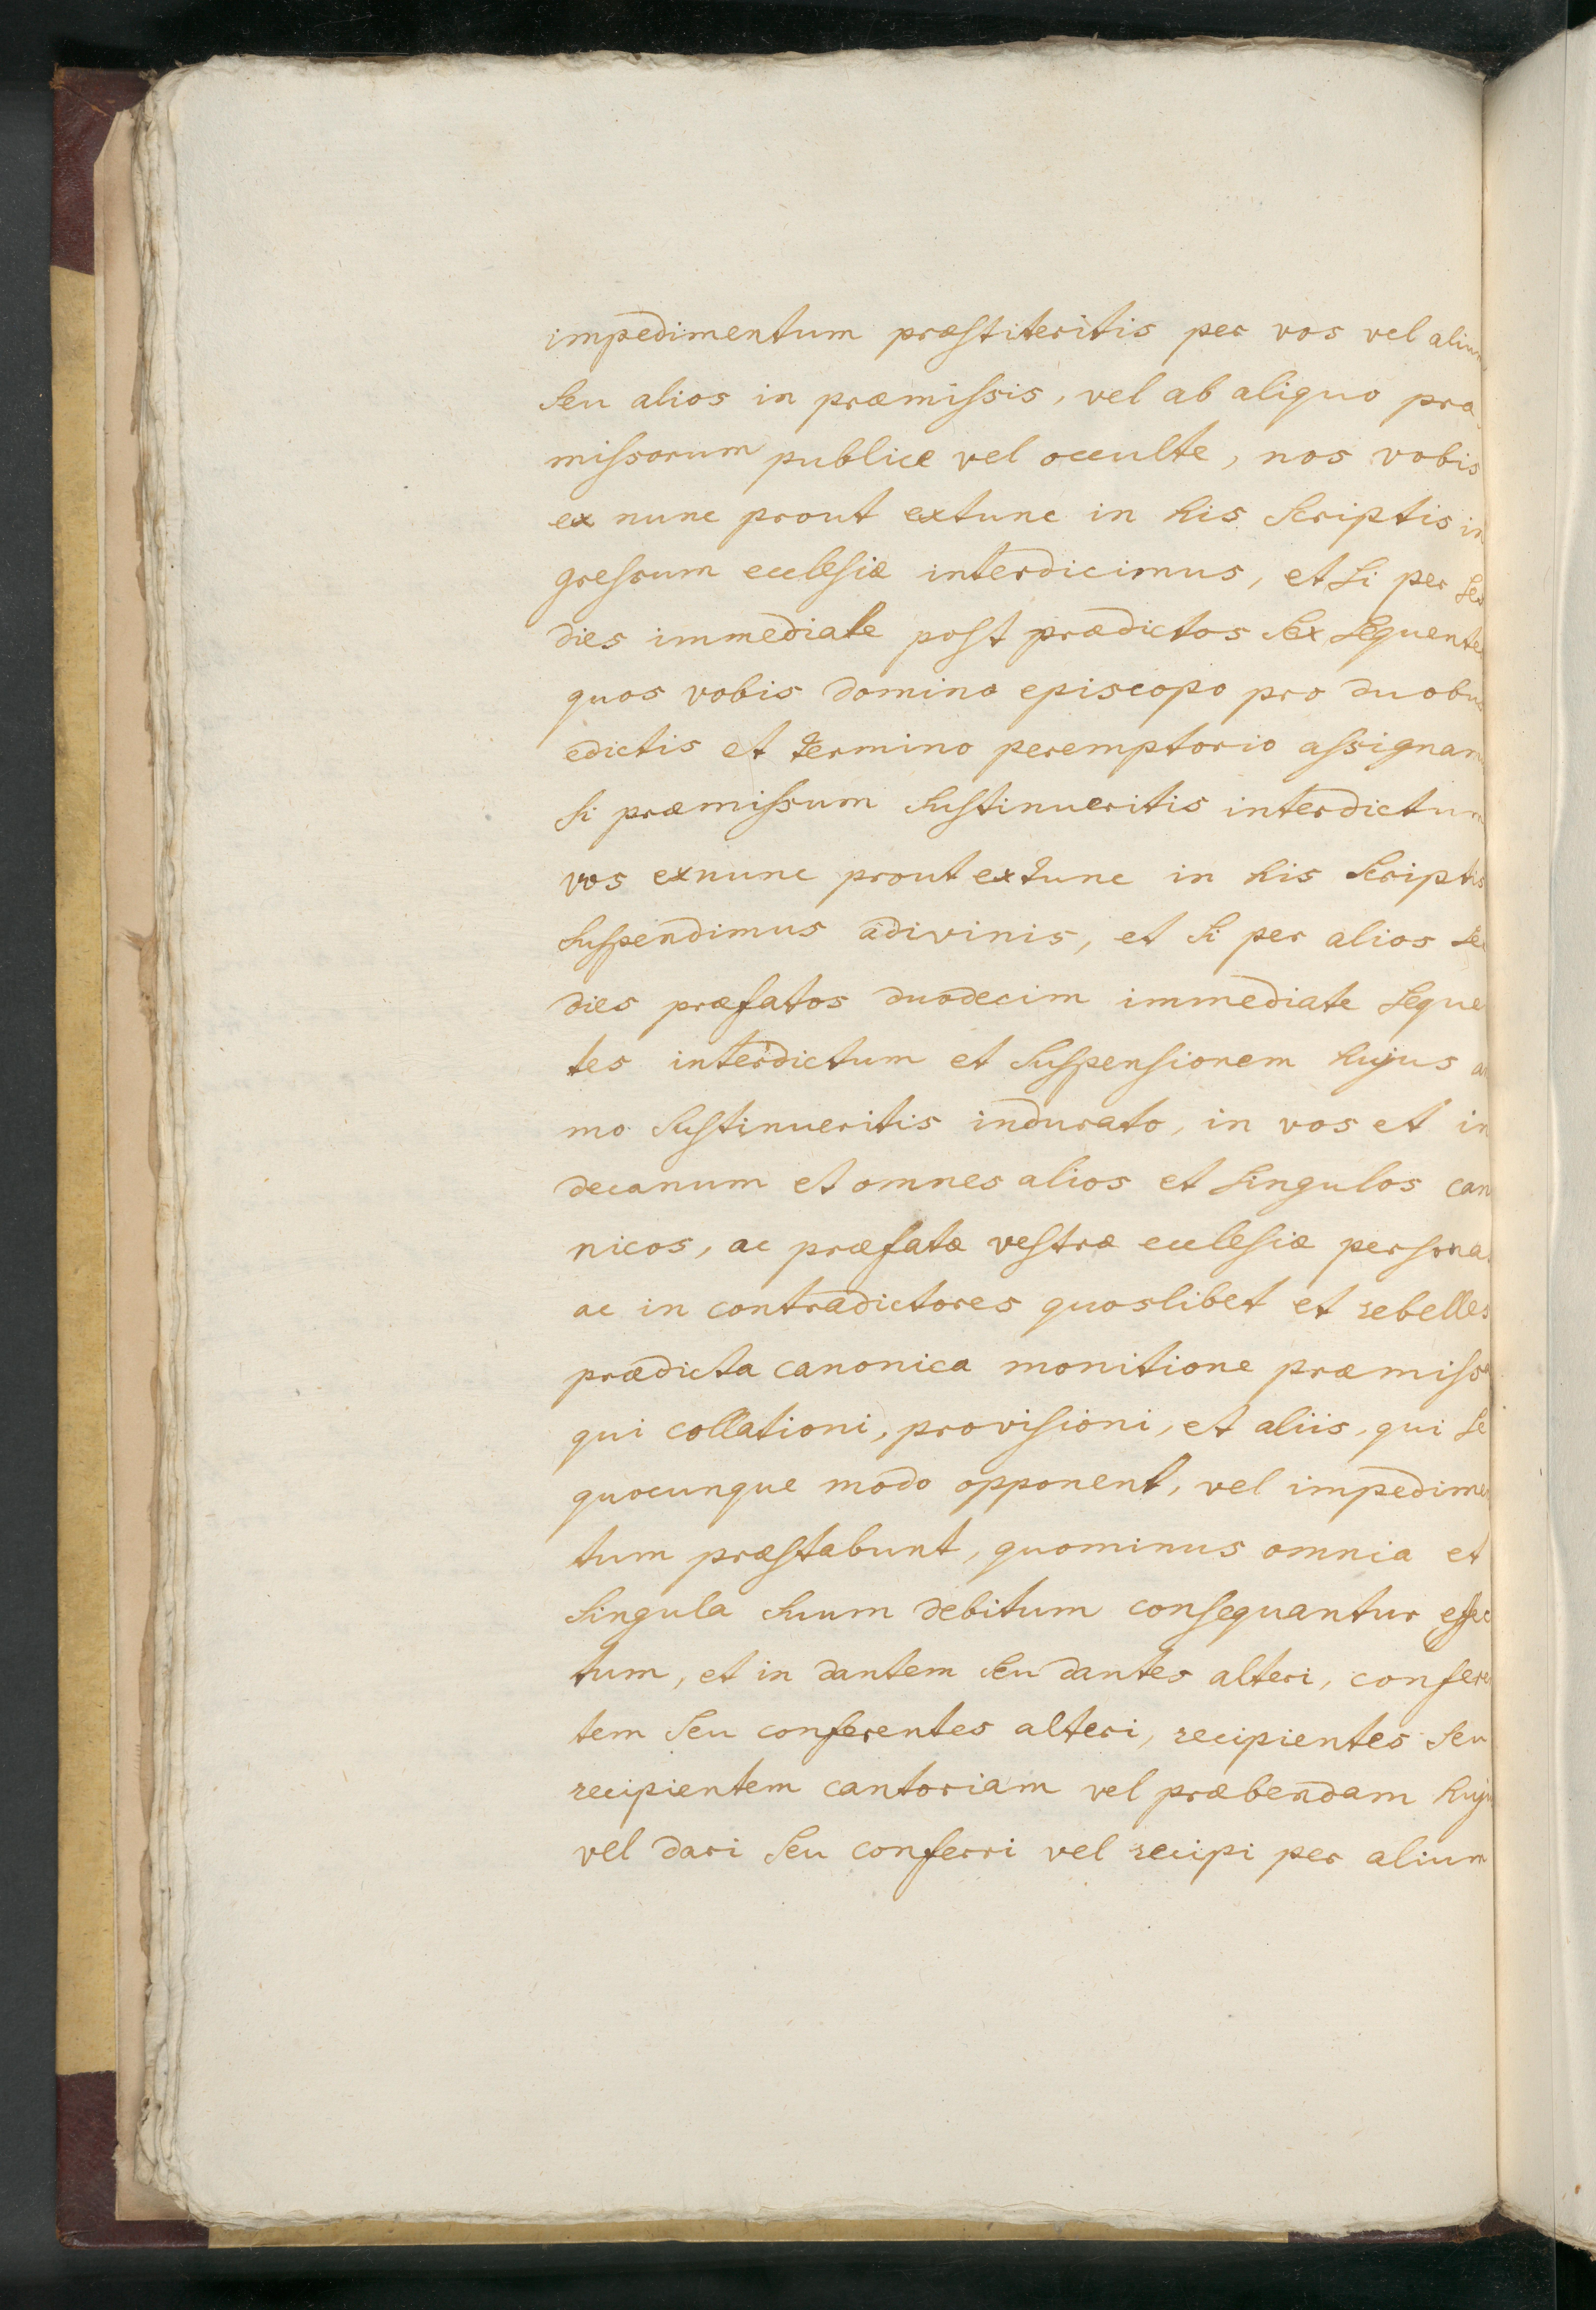 impedimentum præstiteritis per vos vel alium
seu alios in præmissis, vel ab aliquo præ
missorum publice vel occulte, nos vobis
ex nunc prout extunc in his scriptis in
gressum ecclesiæ interdicimus, et si per sex
dies immediate post prædictos sex sequentes
quos vobis domino episcopo pro duobus
edictis et termino peremptorio assignam
si præmissum sustinueritis interdictum
vos exnunc prout extunc in his scriptis
suspendimus adivinis, et si per alios se
dies præfatos duodecim immediate seque
tes interdictum et suspensionem hujus a
mo sustinueritis indurato, in vos et in
decanum et omnes alios et singulos can
nicos, ac præfatæ vestræ ecclesiæ persona
ac in contradictores quoslibet et rebelles
prædicta canonica monitione præmissa
qui collationi, provisioni, et aliis, qui se
quocunque modo opponent, vel impedime
tum præstabunt, quominus omnia et
singula suum debitum consequantur effec
tum, et in dantem seu dantes alteri, confere
tem seu conferentes alteri, recipientes seu
recipientem cantoriam vel præbendam huju
vel dari seu conferri vel recipi per alium